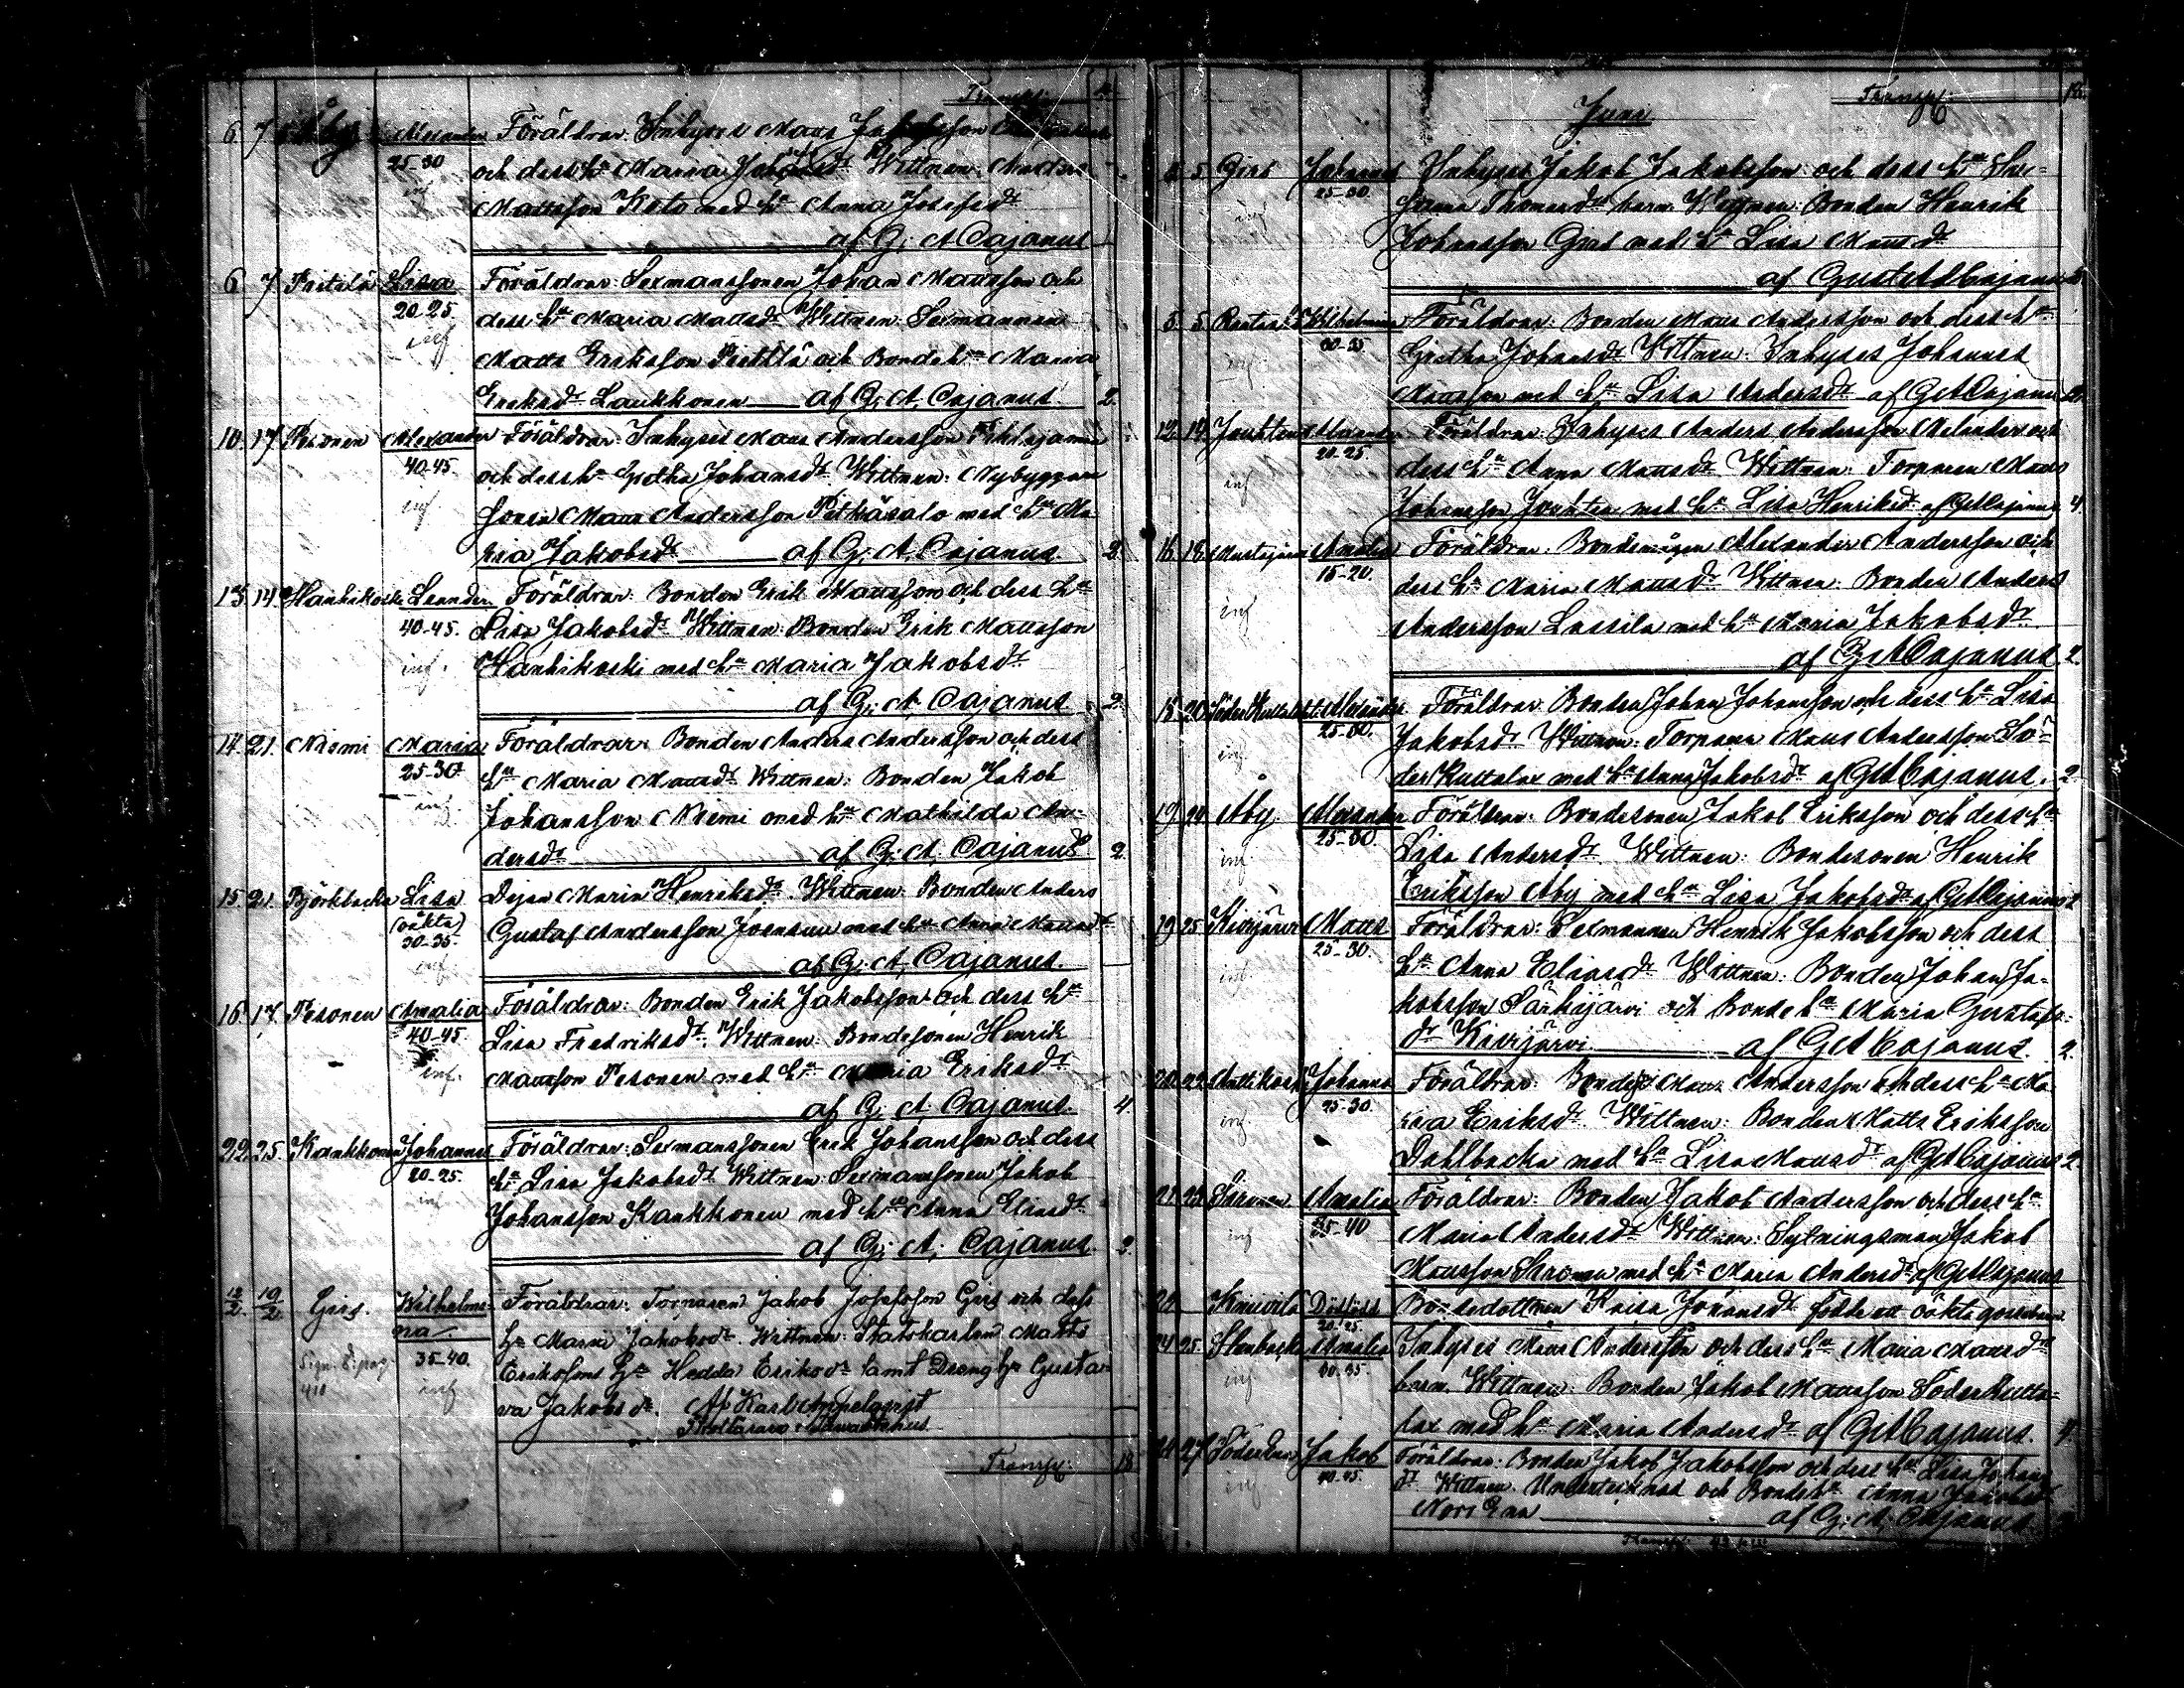 Transp.
6. 7. Åby Alexander Föräldrar: Inhyses Matts
25-30 och dess hu Maria Wittnen: Anders
inf Mattsson Koto med hu Anna Josefsdr
af G. A. Cajanus
6 7 Lisa Föräldrar: Sexmanssonen Johan Mattsson och
20-25 dess hu Maria Mattsdr Wittnen: Sexmannen
inf Matts Eriksson och Bondehu Maria
Eriksdr Laukkonen af G. A. Cajanus 2.
10. 17. Pesonen Alexander Föräldrar: Inhyses Matts Andersson Pihlajamäki
40-45. och dess hu Gretha Johansdr Wittnen: Nybyggare
inf. sonen Matts Andersson Pitkäsalo med hu Ma
ria Jakobsdr af G. A. Cajanus 2.
13. 14. Hanhikoski Leander Föräldrar: Bonden Erik Mattsson och dess hu
40-45. Lisa Jakobsdr Wittnen: Bonden Erik Mattsson
inf. Hanhikoski med hu Maria Jakobsdr
af G. A. Cajanus 2
14. 21. Niemi Maria Föräldrar: Bonden Anders Andersson och dess
25-30. hu Maria Mattsdr Wittnen: Bonden Jakob
inf. Johansson Niemi med hu Mathilda An-
dersdr af G. A. Cajanus 2
15. 21. Björkbacka Lisa Pigan Maria Henriksdr. Wittnen: Bonden Anders
(oäkta) Gustaf Andersson Joensuu med hu Anna Mattsdr
30-35.
inf af G. A. Cajanus.
16. 17. Pesonen Amalia Föräldrar: Bonden Erik Jakobsson och dess hu
40-45. Lisa Fredriksdr. Wittnen: Bondesonen Henrik
inf. Mattsson Pesonen med hu Maria Eriksdr
af G. A. Cajanus. 4
22. 25. Kaukkonen Johannes Föräldrar: Sexmanssonen Erik Johansson och dess
20-25. hu Lisa Jakobsdr Wittnen: Sexmanssonen Jakob
inf Johansson Kaukkonen med hu Anna Eliasdr
af G. A. Cajanus. 2.
12/2. 19/2. Girs. Wilhelmi- Föräldrar: Torparen Jakob Josefsson Girs och dess
na. hu Maria Jakobsdr. Wittnen: Statskarlen Matts
35-40. Erikssons hu Hedda Eriksdr samt Dräng hu Gusta
inf va Jakobsdr. Af Karl Appelqvist
Transp. 18
Juni Transp. 18.
5 Girs Johannes Inhyses Jakob Jakobsson och dess hu Su-
25-30. sanna Thomasdr barn. Wittnen: Bonden Henrik
inf Johansson Girs med hu Lisa Mattsdr
af Gust. Ad. Cajanus
5. Wilhelmina Föräldrar: Bonden Matts Andersson och dess hu
30-35 Gretha Johansdr Wittnen: Inhyses Johannes
inf. Mattsson med hu Lisa Andersdr af G. A. Cajanus 2.
12. 14. Alexander Föräldrar: Inhyses Anders Andersson och
20-25. dess hu Anna Mattsdr. Wittnen: Torparen Matts
inf Johansson med hu Lisa Henriksdr af G. A. Cajanus 4.
16. 18. Amalia Föräldrar: Bondemågen Alexander Andersson och
15-20. dess hu Maria Mattsdr Wittnen: Bonden Anders
inf Andersson Lassila med hu Maria Jakobsdr
af G. A. Cajanus 2.
18. 20. Alexander Föräldrar: Bonden Johan Johansson och dess hu Lisa
25-30. Jakobsdr Wittnen: Torparen Matts Andersson Sö-
inf. der Kultalax med hu Anna Jakobsdr af G. A. Cajanus. 2
19. Åby Alexander Föräldrar: Bondesonen Jakob Eriksson och dess hu
25-30. Lisa Andersdr. Wittnen: Bondesonen Henrik
inf. Eriksson Åby med hu Lisa Jakobsdr af G. A. Cajanus 2
19. 25. Kivijärvi Matts Föräldrar: Sexmannen Henrik Jakobsson och dess
25-30. hu Anna Eliasdr Wittnen: Bonden Johan Ja-
inf. kobsson Särkijärvi och Bonde hu Maria Gustafs-
dr Kivijärvi af G. A. Cajanus. 2.
20. 22. Anttikoski Johanna Föräldrar: Bonden Matts Andersson och dess hu Ma
25-30. ria Eriksdr. Wittnen: Bonden Matts Eriksson
inf. Dahlbacka med hu Lisa Mattsdr af G. A. Cajanus 2
21. 25. Sironen Amalia Föräldrar: Bonden Jakob Andersson och dess hu
35-40 Maria Andersdr Wittnen: Sytningsman Jakob
inf Mattsson Sironen med hu Maria Andersdr af G. A. Cajanus
Dödfödd Bondedottren Kaisa Johansdr födde ett oäkta gossebarn.
20-25.
24 25. Stenbacka Amalia Inhyses Matts Andersson och dess hu Maria Mattsdr
30-35. barn. Wittnen: Bonden Jakob Mattsson Söder Kulta-
inf lax med hu Maria Andersdr af G. A. Cajanus. 4
24 27. Jakob Föräldrar: Bonden Jakob Jakobsson och dess hu Lisa Johans
40-45. dr Wittnen: Undertecknad och Bonde hu Anna
inf af G. A. Cajanus
Transp.